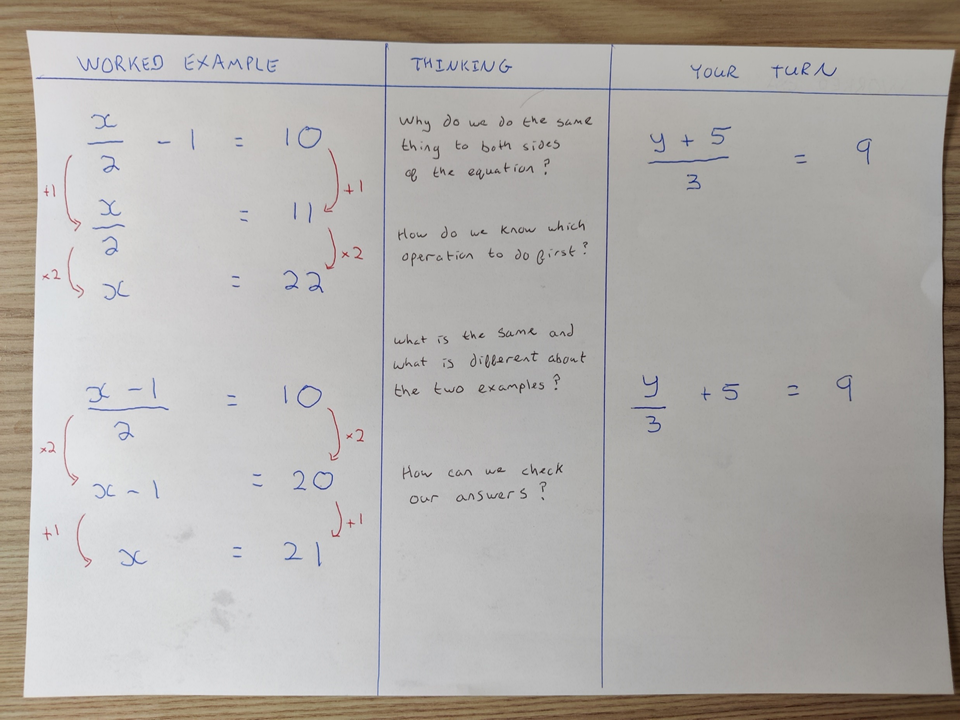 WORKED EXAMPLE
x/2 - 1 = 10
+1 +1
x/2 = 11
×2 ×2
x = 22
x - 1/2 = 10
×2 ×2
x - 1 = 20
+1 +1
x = 21
THINKING
Why do we do the same
thing to both sides
of the equation?
How do we know which
operation to do first?
What is the same and
what is different about
the two examples?
How can we check
our answers?
YOUR TURN
y + 5/3 = 9
y/3 + 5 = 9